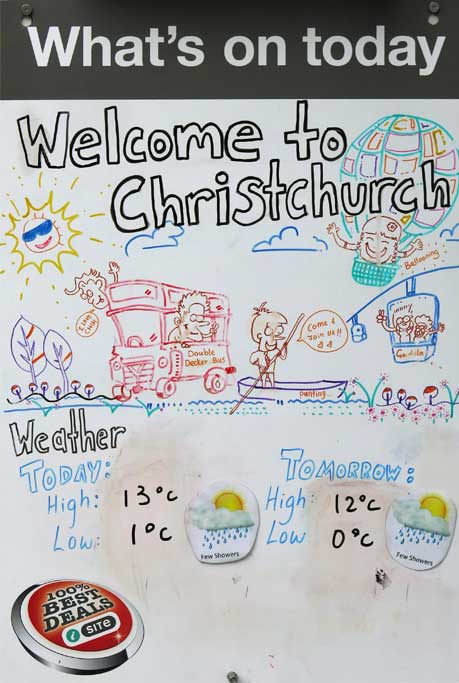 What's on today
Welcome to
Christchurch
Ballooning
Come &
Join us!!
Double
Decker Bus
Gondola
Punting...
Weather
TODAY:
High: 13°c
Low: 1°c
Few Showers
TOMORROW:
High: 12°c
Low 0°c
Few Showers
100%
BEST
DEALS
i SITE